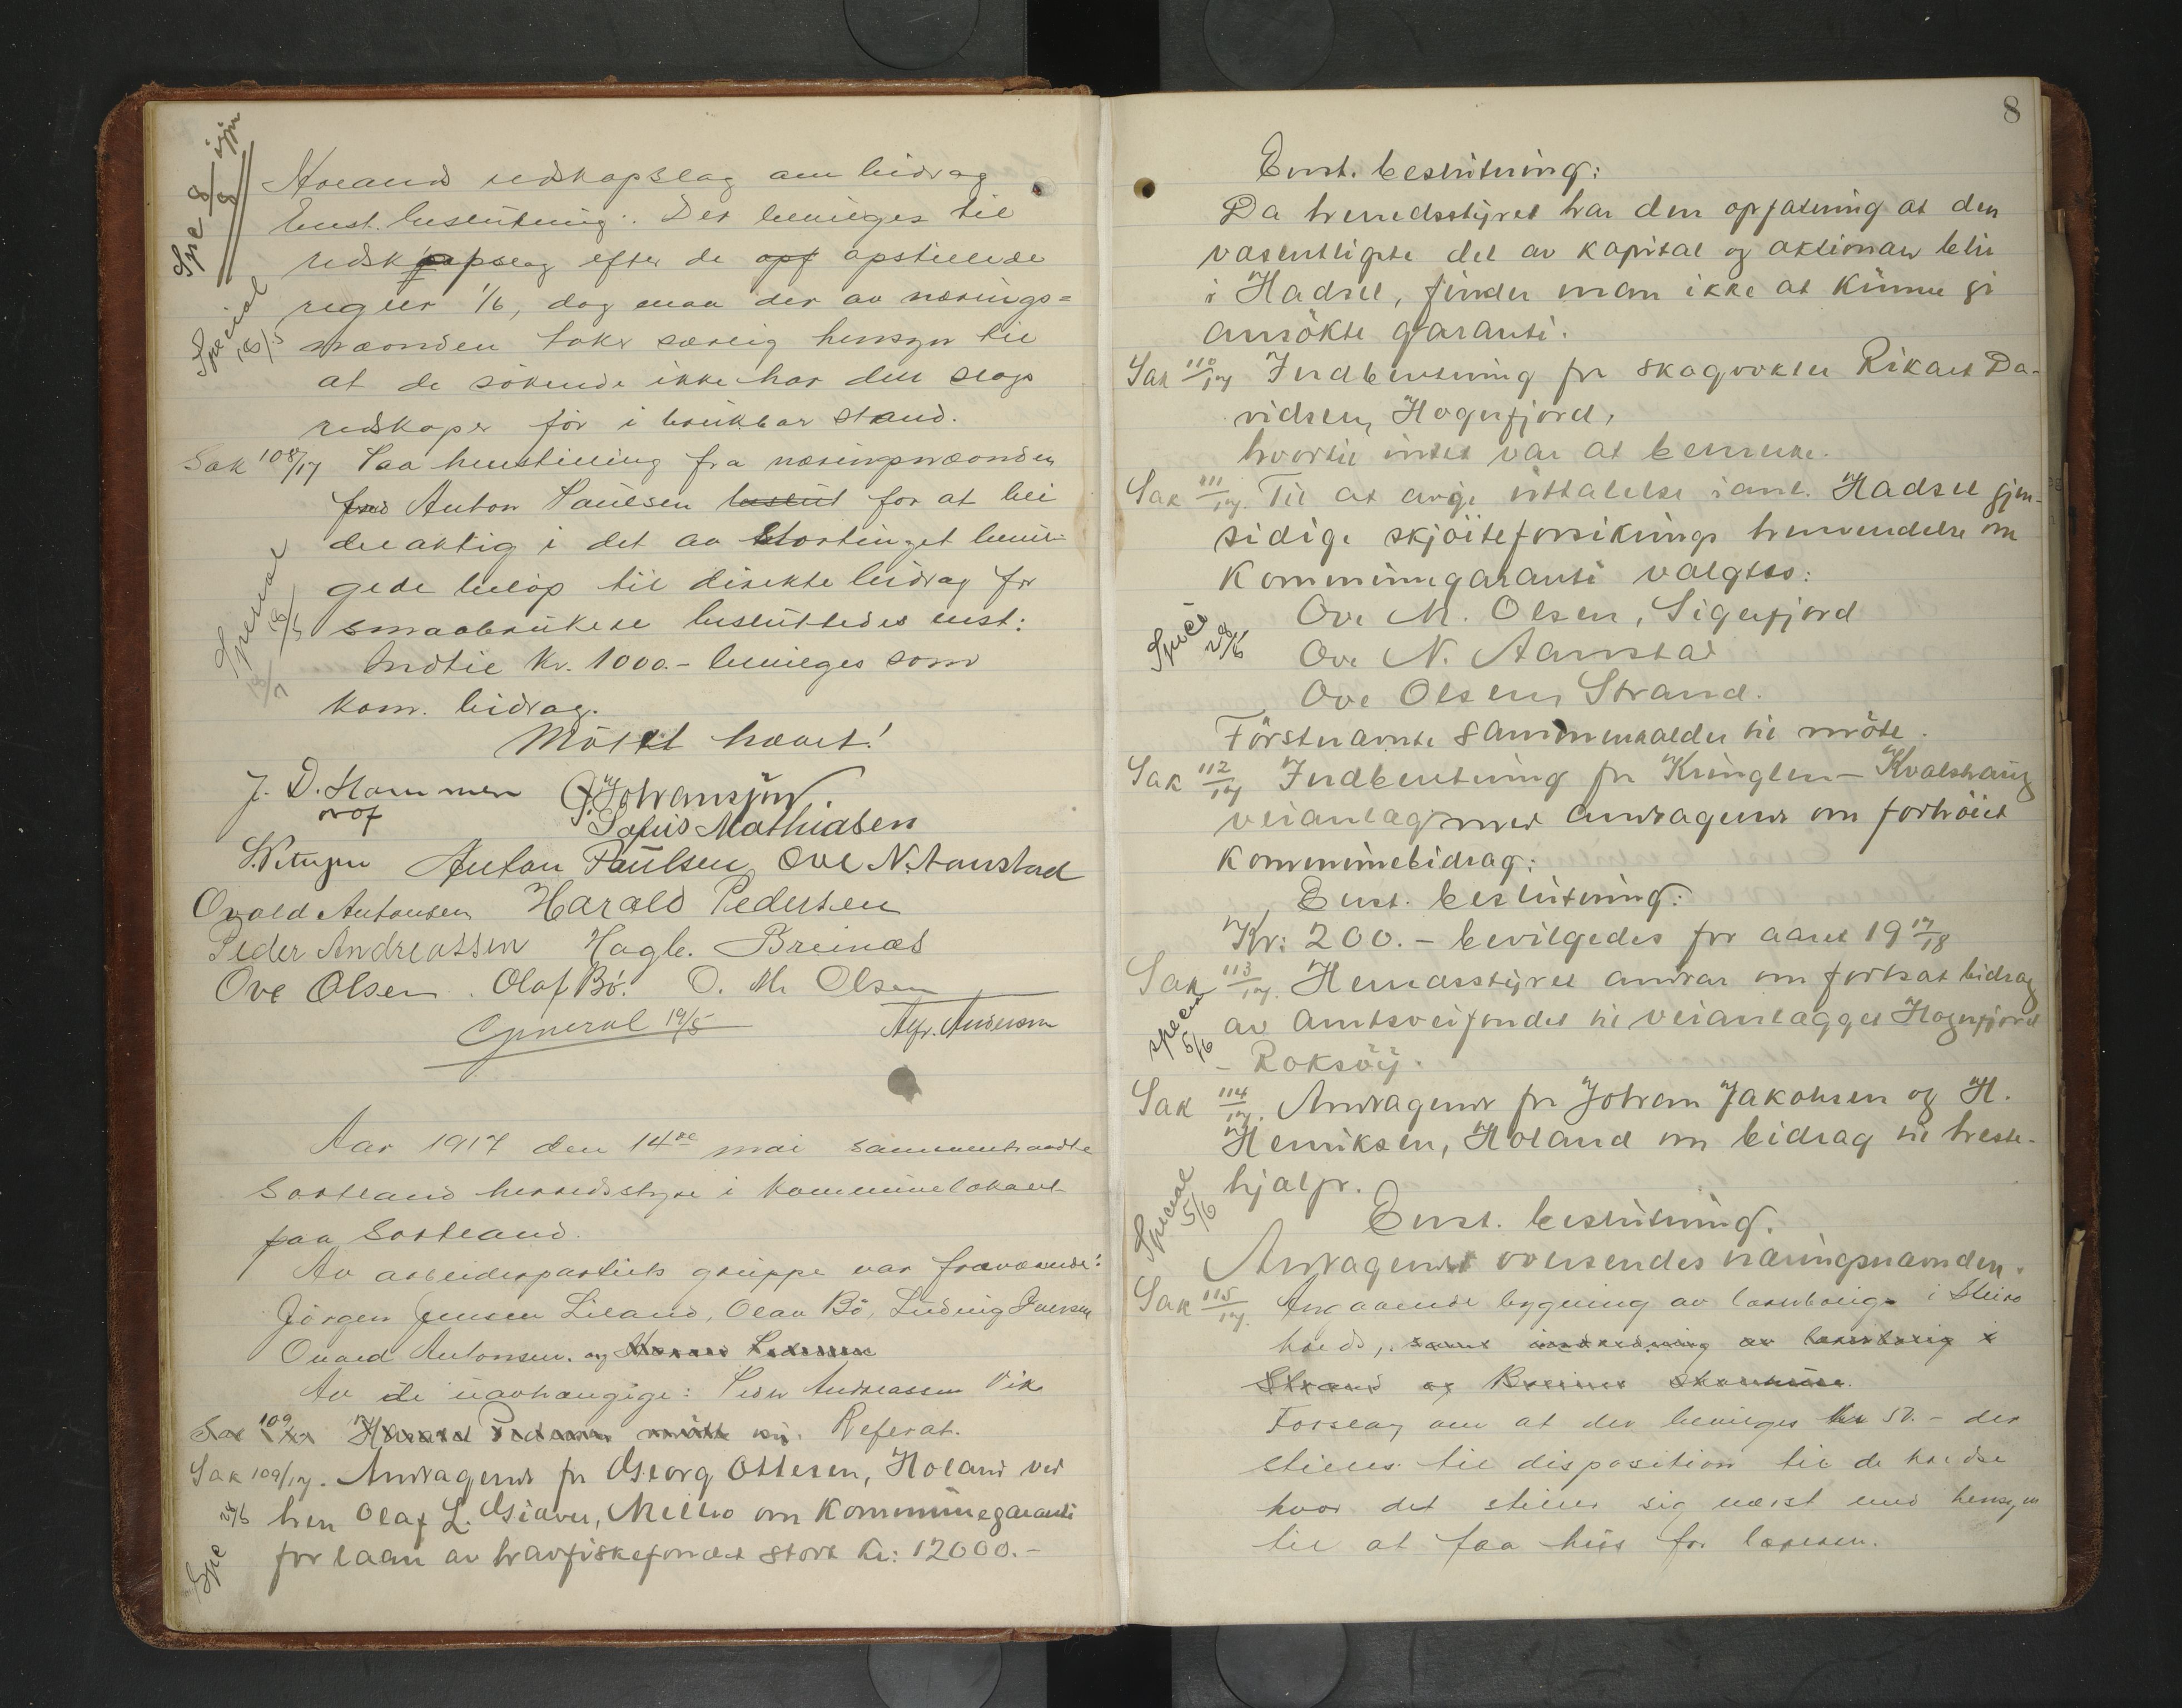 Spec 8/8 igjen
Holand redskapslag om bidrag
Enst. beslutning: Det bevilges til
redskapslag efter de opf opstillede
regler 1/6, dog maa der av nærings-
Special 18/5
nævnden takes særlig hensyn til
at de søkende ikke har den slags
redskaper før i brukbar stand.
Sak 108/17 Paa henstilling fra næringsnævnden
ved Anton Paulsen beslut for at bli
delaktig i det av Stortinget bevil-
gede beløp til direkte bidrag for
Special 18/5
småbrukere besluttedes enst:
Indtil kr. 1000.- bevilges som
kom. bidrag.
Møtet hævet!
J. D. Hammer G. Johansen
Sofus Mathiasen
Anton Paulsen Ove N. Aanstad
Osvald Antonsen Harald Pedersen
Peder Andreassen Hagb. Breines
Ove Olsen. Olaf Bö. O. M. Olsen
General 19/5 Alfr. Andersen
Aar 1917 den 14de mai sammentraadte
Sortland herredsstyre i kommunelokalet
paa Sortland.
Av arbeiderpartiets gruppe var fraværende:
Jörgen Jensen Liland, Olav Bö, Ludvig Iversen
Osvald Antonsen. og Harald Pedersen
Av de uavhængige: Peder Andreassen Vik
Sak 109/17 Harald Pedersen møtte nu. Referat.
Sak 109/17. Andragende fra Georg Ottesen, Holand ved
hrr Olaf L. Giæver, Melbo om kommunegaranti
for laan av havfiskefondet stort kr: 12000.-
Spec 28/6
8
Enst. beslutning:
Da herredsstyret har den opfatning at den
væsentligste del av kapital og aktionær blir
i Hadsel, finder man ikke at kunne gi
ansökte garanti.
Sak 110/17 Indberetning fra skogvokter Rikart Da-
vidsen, Hognfjord,
hvortil intet var at bemerke.
Sak 111/17. Til at avgi uttalelse i anl. Hadsel gjen-
sidige skjöiteforsikrings henvendelse om
kommunegaranti valgtes:
Spec 28/6
Ove M. Olsen, Sigerfjord
Ove N. Aanstad
Ove Olsen, Strand.
Förstnævnte sammenkalder til möte.
Sak 112/17 Indberetning fra Kringlen - Kvalshaug
veianlæg med andragende om forhöiet
kommunebidrag:
Enst. beslutning:
Kr: 200.- bevilgedes for aaret 1917/18
Sak 113/17. Herredsstyret andrar om fortsat bidrag
av amtsveifondet til veianlægget Hognfjord
Special 5/6
- Roksöy.
Sak 114/17. Andragende fra Johan Jakobsen og H.
Henriksen, Holand om bidrag til heste-
hjælp.
Special 5/6
Enst. beslutning.
Andragendet oversendes næringsnævnden.
Sak 115/17. Angaaende bygning av lærerbolig i Steiro
kreds, samt indredning av lærerbolig i
Strand og Breines skolehuse.
Forslag om at der bevilges kr 50.- der
stilles til disposition til de kredse
hvor det stiller sig værst med hensyn
til at faa hus for læreren.